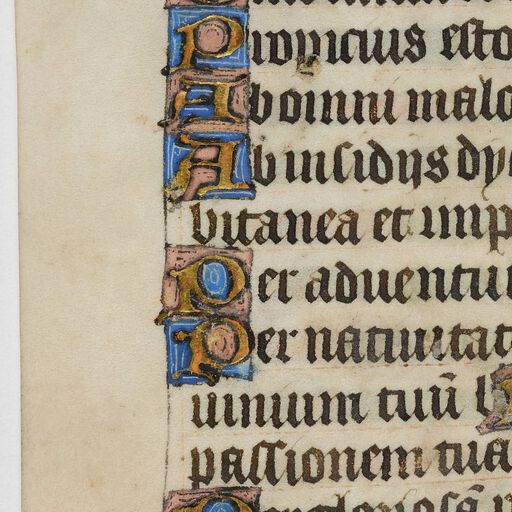 Propicius esto
Ab omni malo
Ab insidijs dy
bitanea et imp
Per aduentu
Per natiuitat
uinium tuū
passionem tua